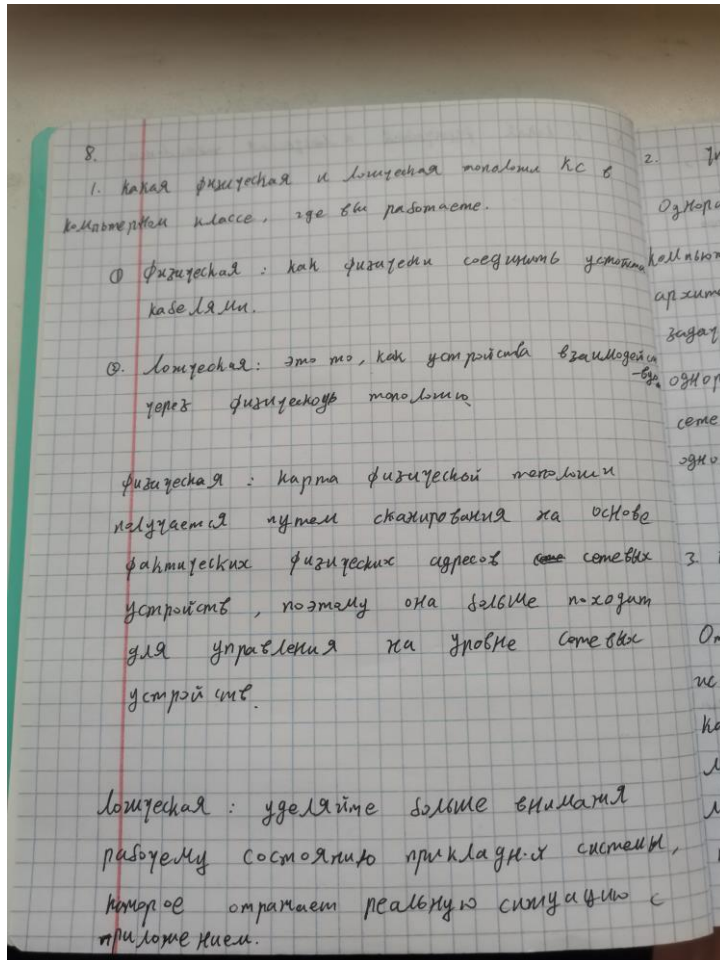 8.
1. Какая физическая и логическая топологи КС в
компьтерном классе, где вы работаете.
① Физическая : как физически соединить
кабелями.
②. Логическая : это то, как устройства взаимодейс
-вую
через физическую топологию
физическая : карта физической топологии
получается путем сканирования на основе
фактических физических адресов сетевых
устройств, поэтому она больше походит
для управления на уровне сетевых
устройств.
Логическая : уделяйте больше внимания
рабочему состоянию прикладных системы,
которое отражает реальную ситуацию с
приложением.
2.
Однора
компьют
архите
задач
однор
сете
одно
3.
От
ис
ка